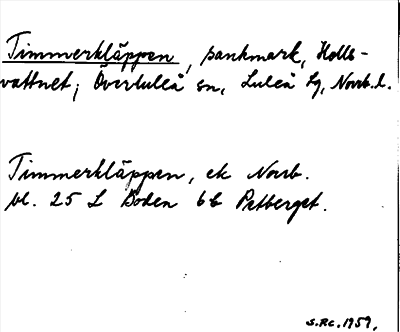 Timmerkläppen, sankmark, Holls-
vattnet, Överluleå sn, Luleå lg, Norrb. l.
Timmerkläppen, ek Norrb.
bl. 25 L Boden 6b Petberget.
S.Rc. 1959.